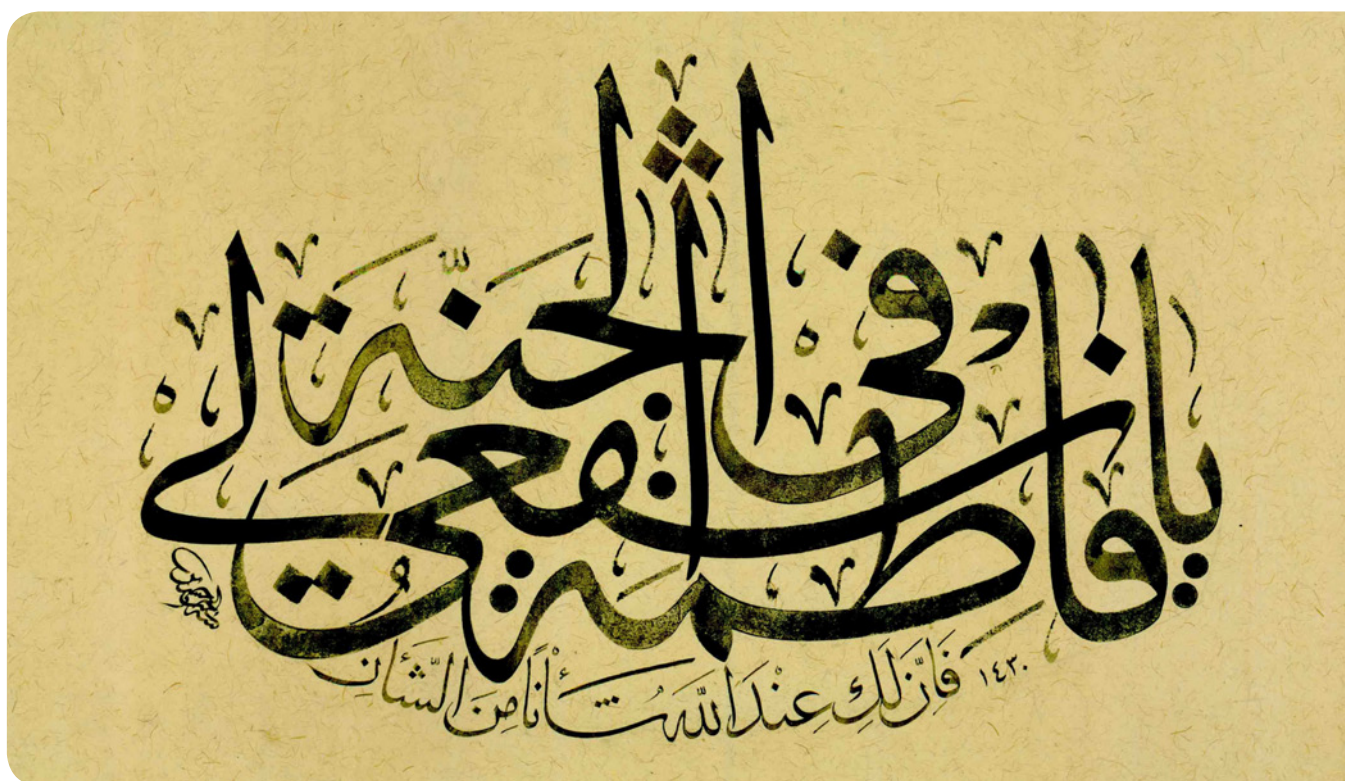 يا فاطمة اشفعي لي في الجنة
فَاِنَّ لَكِ عِنْدَ اللهِ شَأْنًا مِنَ الشَّأْنِ
١٤٣٠